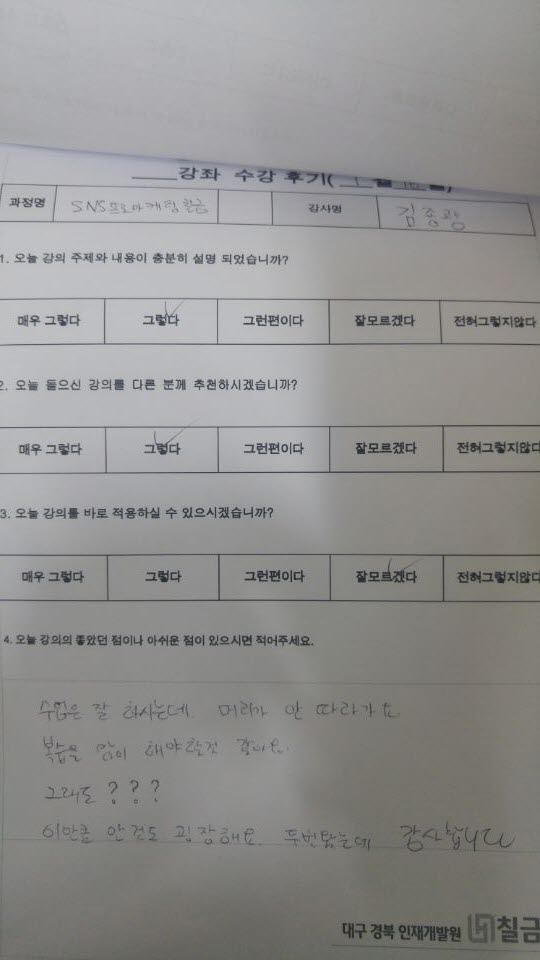 강좌 수강 후기(
과정명 SNS프로마케팅 황금 강사명 김종광
1. 오늘 강의 주제와 내용이 충분히 설명 되었습니까?
매우 그렇다 그렇다 그런편이다 잘모르겠다 전혀그렇지않다
2. 오늘 들으신 강의를 다른 분께 추천하시겠습니까?
매우 그렇다 그렇다 그런편이다 잘모르겠다 전혀그렇지않다
3. 오늘 강의를 바로 적용하실 수 있으시겠습니까?
매우 그렇다 그렇다 그런편이다 잘모르겠다 전혀그렇지않다
4. 오늘 강의의 좋았던 점이나 아쉬운 점이 있으시면 적어주세요.
수업은 잘 하시는데. 머리가 안 따라가요
복습을 많이 해야할것 같아요.
그래도 ? ? ?
이만큼 안것도 굉장해요. 두번 왔는데 감사합니다
대구 경북 인재개발원 칠금